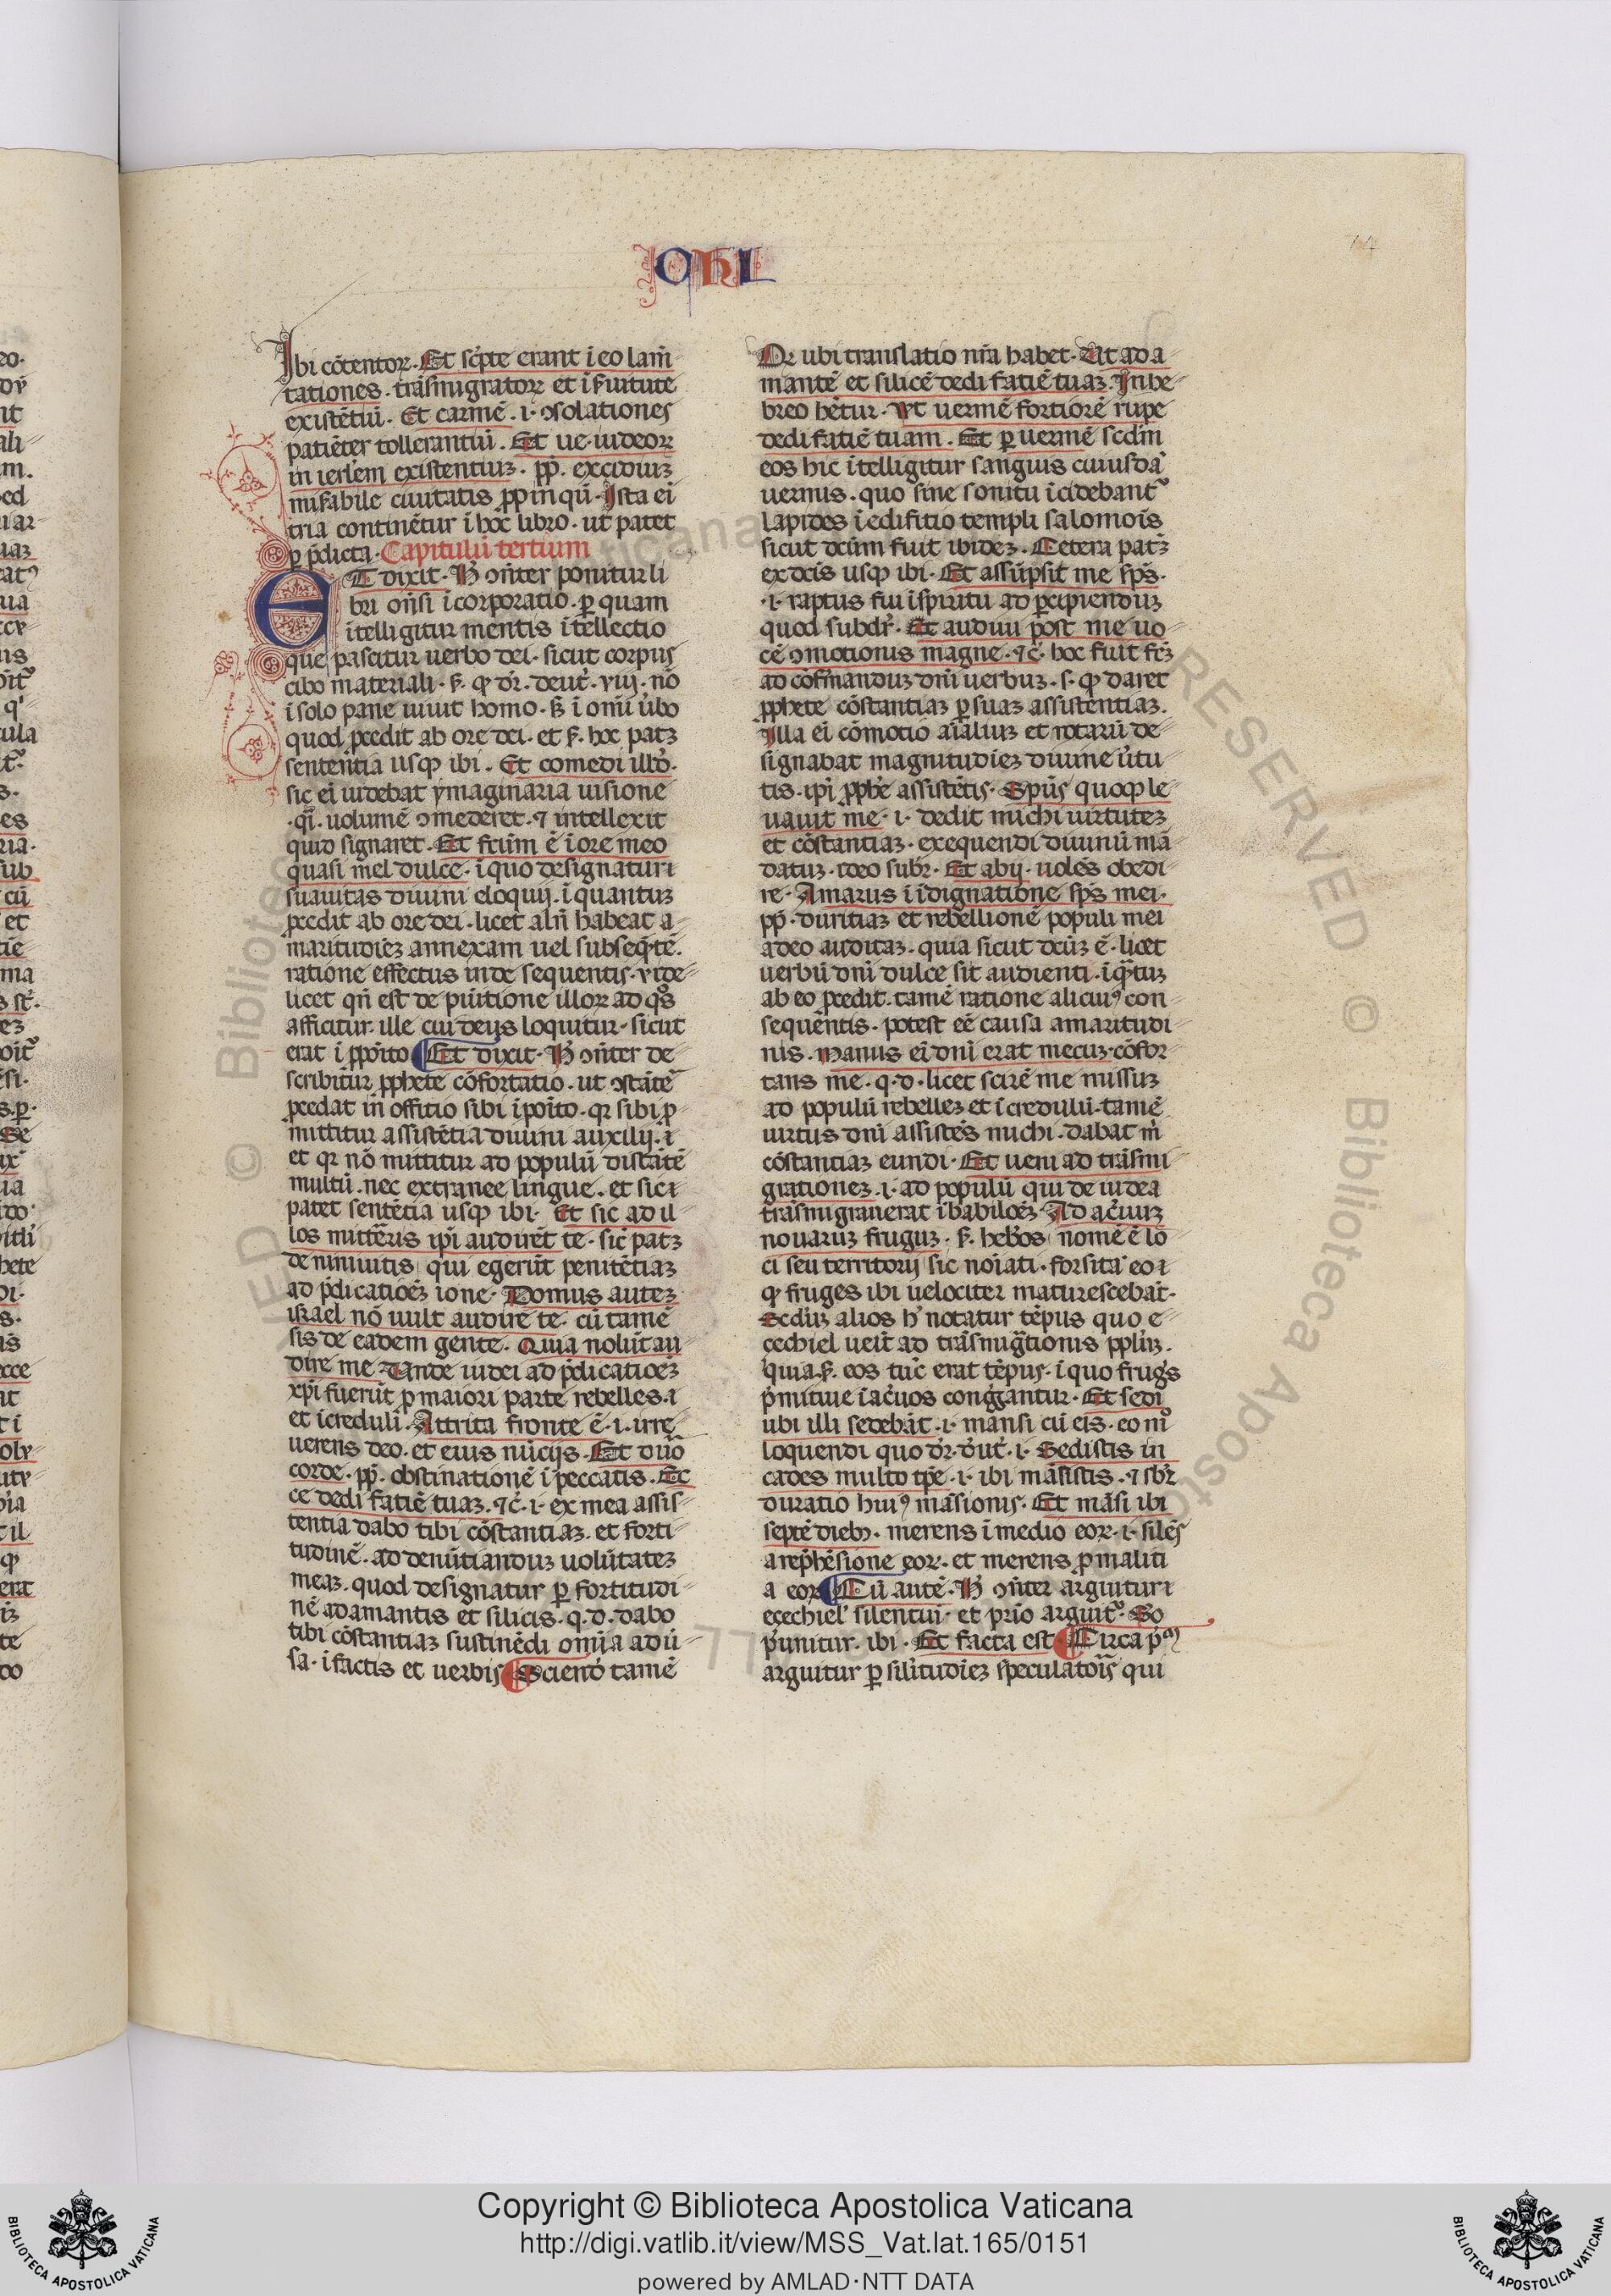 IOHL
Ibi cōtentoꝝ. Et sc̄pte erant ī eo lam̄
tationes. trāsmigratoꝝ et ī ẜuitute
existētiū. Et carmē. i. ꝯsolationes
patiēter tollerantiū. Et ue. iudeoꝝ
in ierlēm existentiuꝫ. ꝓp̄. excidiuꝫ
miẜabile ciuitatis ꝓpinqū. Ista ei̇
tria continētur ī hoc̄ libro. ut patet
ꝑ p̄dicta. Capitulū tertium
ET dixit. H̄ ꝯn̄ter poniturli
bri ꝯn̄si īcorporatio. ꝑ quam
ītelligitur mentis ītellectio
que pascitur uerbo dei. sicut corpus
cibo materiali. ẜ. ꝙ dr̄. deut̄. viij. nō
ī solo pane uiuit homo. ẜꝫ ī omī u̇bo
quod ꝓcedit ab ore dei. et ẜ. hoc patꝫ
sententia usqꝫ ibi. Et comedi illō.
sic ei̇ uidebat ymaginaria uisione
.qd̄. uolumē ꝯmederet. ⁊ intellexit
quid signaret. Et fc̄um ē ī ore meo
quasi mel dulce. ī quo designatur ı
suauitas diuini eloquij. ī quantuꝫ
ꝓcedit ab ore dei. licet aln̄ habeat a
maritudīeꝫ annexam uel subseq̄tē.
ratione effectus inde sequentis. vide
licet qn̄ est de pūitione illoꝝ ad qͦs
afficitur. ille cui deus loquitur. sicut
erat ī ꝓpōito Et dixit. H̄ ꝯn̄ter de
scribitur ꝓphete cōfortatio. ut ꝯstātē
ꝓcedat in offitio sibi īpōito. qꝛ sibi ꝓ
mittitur assistētia diuini auxilij. ı
et qꝛ nō mittitur ad populū distātē
multū. nec extranee lingue. et sic ı
patet sentētia usqꝫ ibi. Et sic ad il
los mitteris ip̄i audirēt te. sic̄ patꝫ
de niniuitis qui egerūt penitētiaꝫ
ad p̄dicatiōeꝫ ione. Domus auteꝫ
israel nō uult audire te. cū tamē
sis de eadem gente. Quia nolūt au
dire me. Tande iudei ad p̄dicatiōeꝫ
xp̄i fuerūt ꝓ maiori parte rebelles. ı
et īcreduli. Attrita fronte ē. i. irre
uerens deo. et eius nūcijs. Et durō
corde. ꝓp̄. obstinationē ī peccatis. Ec
ce dedi fatiē tuaꝫ. ⁊c̄. i. ex mea assis
tentia dabo tibi cōstantiaꝫ. et forti
tudinē. ad denūtianduꝫ uolūtateꝫ
meaꝫ. quod designatur ꝑ fortitudi
nē adamantis et silicis. q.d. dabo
tibi cōstantiaꝫ sustinēdi omīa adū
sa. ī factis et uerbis Sciendō tamē
Or ubi translatio nr̄a habet. Ut ad a
mantē et silicē dedi fatiē tuaꝫ. In he
breo hētur. Ut uermē fortiorē rupe
dedi fatiē tuam. Et ꝑ uermē scd̄m
eos hic ītelligitur sanguis cuiusdā
uermis. quo sine sonitu īcidebantᷣ
lapides ī edifitio templi salomois
sicut dcūm fuit ibideꝫ. Cetera patꝫ
ex dcīs usqꝫ ibi. Et assūpsit me sps̄.
.i. raptus fui īspiritu ad ꝑcipienduꝫ
quod subdr̄. Et audiui post me uo
cē ꝯmotionis magne. ⁊c̄. hoc fuit fc̄ꝫ
ad cōfirmanduꝫ dnī uerbuꝫ. s. ꝙ daret
ꝓphete cōstantiaꝫ ꝑ suaꝫ assistentiaꝫ.
Illa ei̇ cōmotio aīaliuꝫ et rotarū de
signabat magnitudieꝫ diuine u̇tu
tis. ip̄i ꝓphē assistētis. Spūs quoqꝫ le
uauit me. i. dedit michi uirtuteꝫ
et cōstantiaꝫ. exequendi diuinū mā
datuꝫ. ideo subr̄. Et abij. uolēs obedi
re. Amarus ī īdignatione sps̄ mei.
ꝓp̄. duritiaꝫ et rebellionē populi mei
adeo auditaꝫ. quia sicut dcūꝫ ē. licet
uerbū dnī dulce sit audienti. īqᷓtuꝫ
ab eo ꝓcedit. tamē ratione alicuiꝰ con
sequentis. potest eē causa amaritudi
nis. Manus ei̇ dnī erat mecuꝫ. cōfor
tans me. q.d. licet scirē me missuꝫ
ad populū rebelleꝫ et īcredulū. tamē
uirtus dnī assistēs michi. dabat m̄
cōstantiaꝫ eundi. Et ueni ad trāsmi
grationeꝫ. i. ad populū qui de iudea
trāsmigrauerat ī babiloēꝫ. Ad ac̄uuꝫ
nouaruꝫ fruguꝫ. ẜ. hebr̄os nomē ē lo
ci seu territorij sic noīati. forsitā eo ı
ꝙ fruges ibi uelociter maturescebāt.
Scd̄uꝫ alios h̄ notatur tēpus quo e
cechiel ueīt ad trāsmigᷓtionis ppl̄uꝫ.
quia. ẜ. eos tūc erat tēpus. ī quo frugs
p̄mitiue ī ac̄uos congᷓgantur. Et sedi
ubi illi sedebāt. i. mansi cū eis. eo mͦ
loquendi quo dr̄. deut̄. i. Sedistis in
cades multo tp̄e. i. ibi māsistis. ⁊ sbr̄
duratio huiꝰ māsionis. Et māsi ibi
septē diebꝫ. merens ī medio eoꝝ. i. silēs
a rep̄hēsione eoꝝ. et merens ꝓ maliti
a eoꝝ Cū autē. H̄ ꝯn̄ter arguitur ı
eçechiel̄ silentiū. et prīo arguitᷣ. So
p̄unitur. ibi. Et facta est Circa p̄ᵐ
arguitur ꝑ sil̄itudieꝫ speculatoīs qui
Copyright © Biblioteca Apostolica Vaticana
http://digi.vatlib.it/view/MSS_Vat.lat.165/0151
powered by AMLAD·NTT DATA
BIBLIOTECA APOSTOLICA VATICANA
BIBLIOTECA APOSTOLICA VATICANA